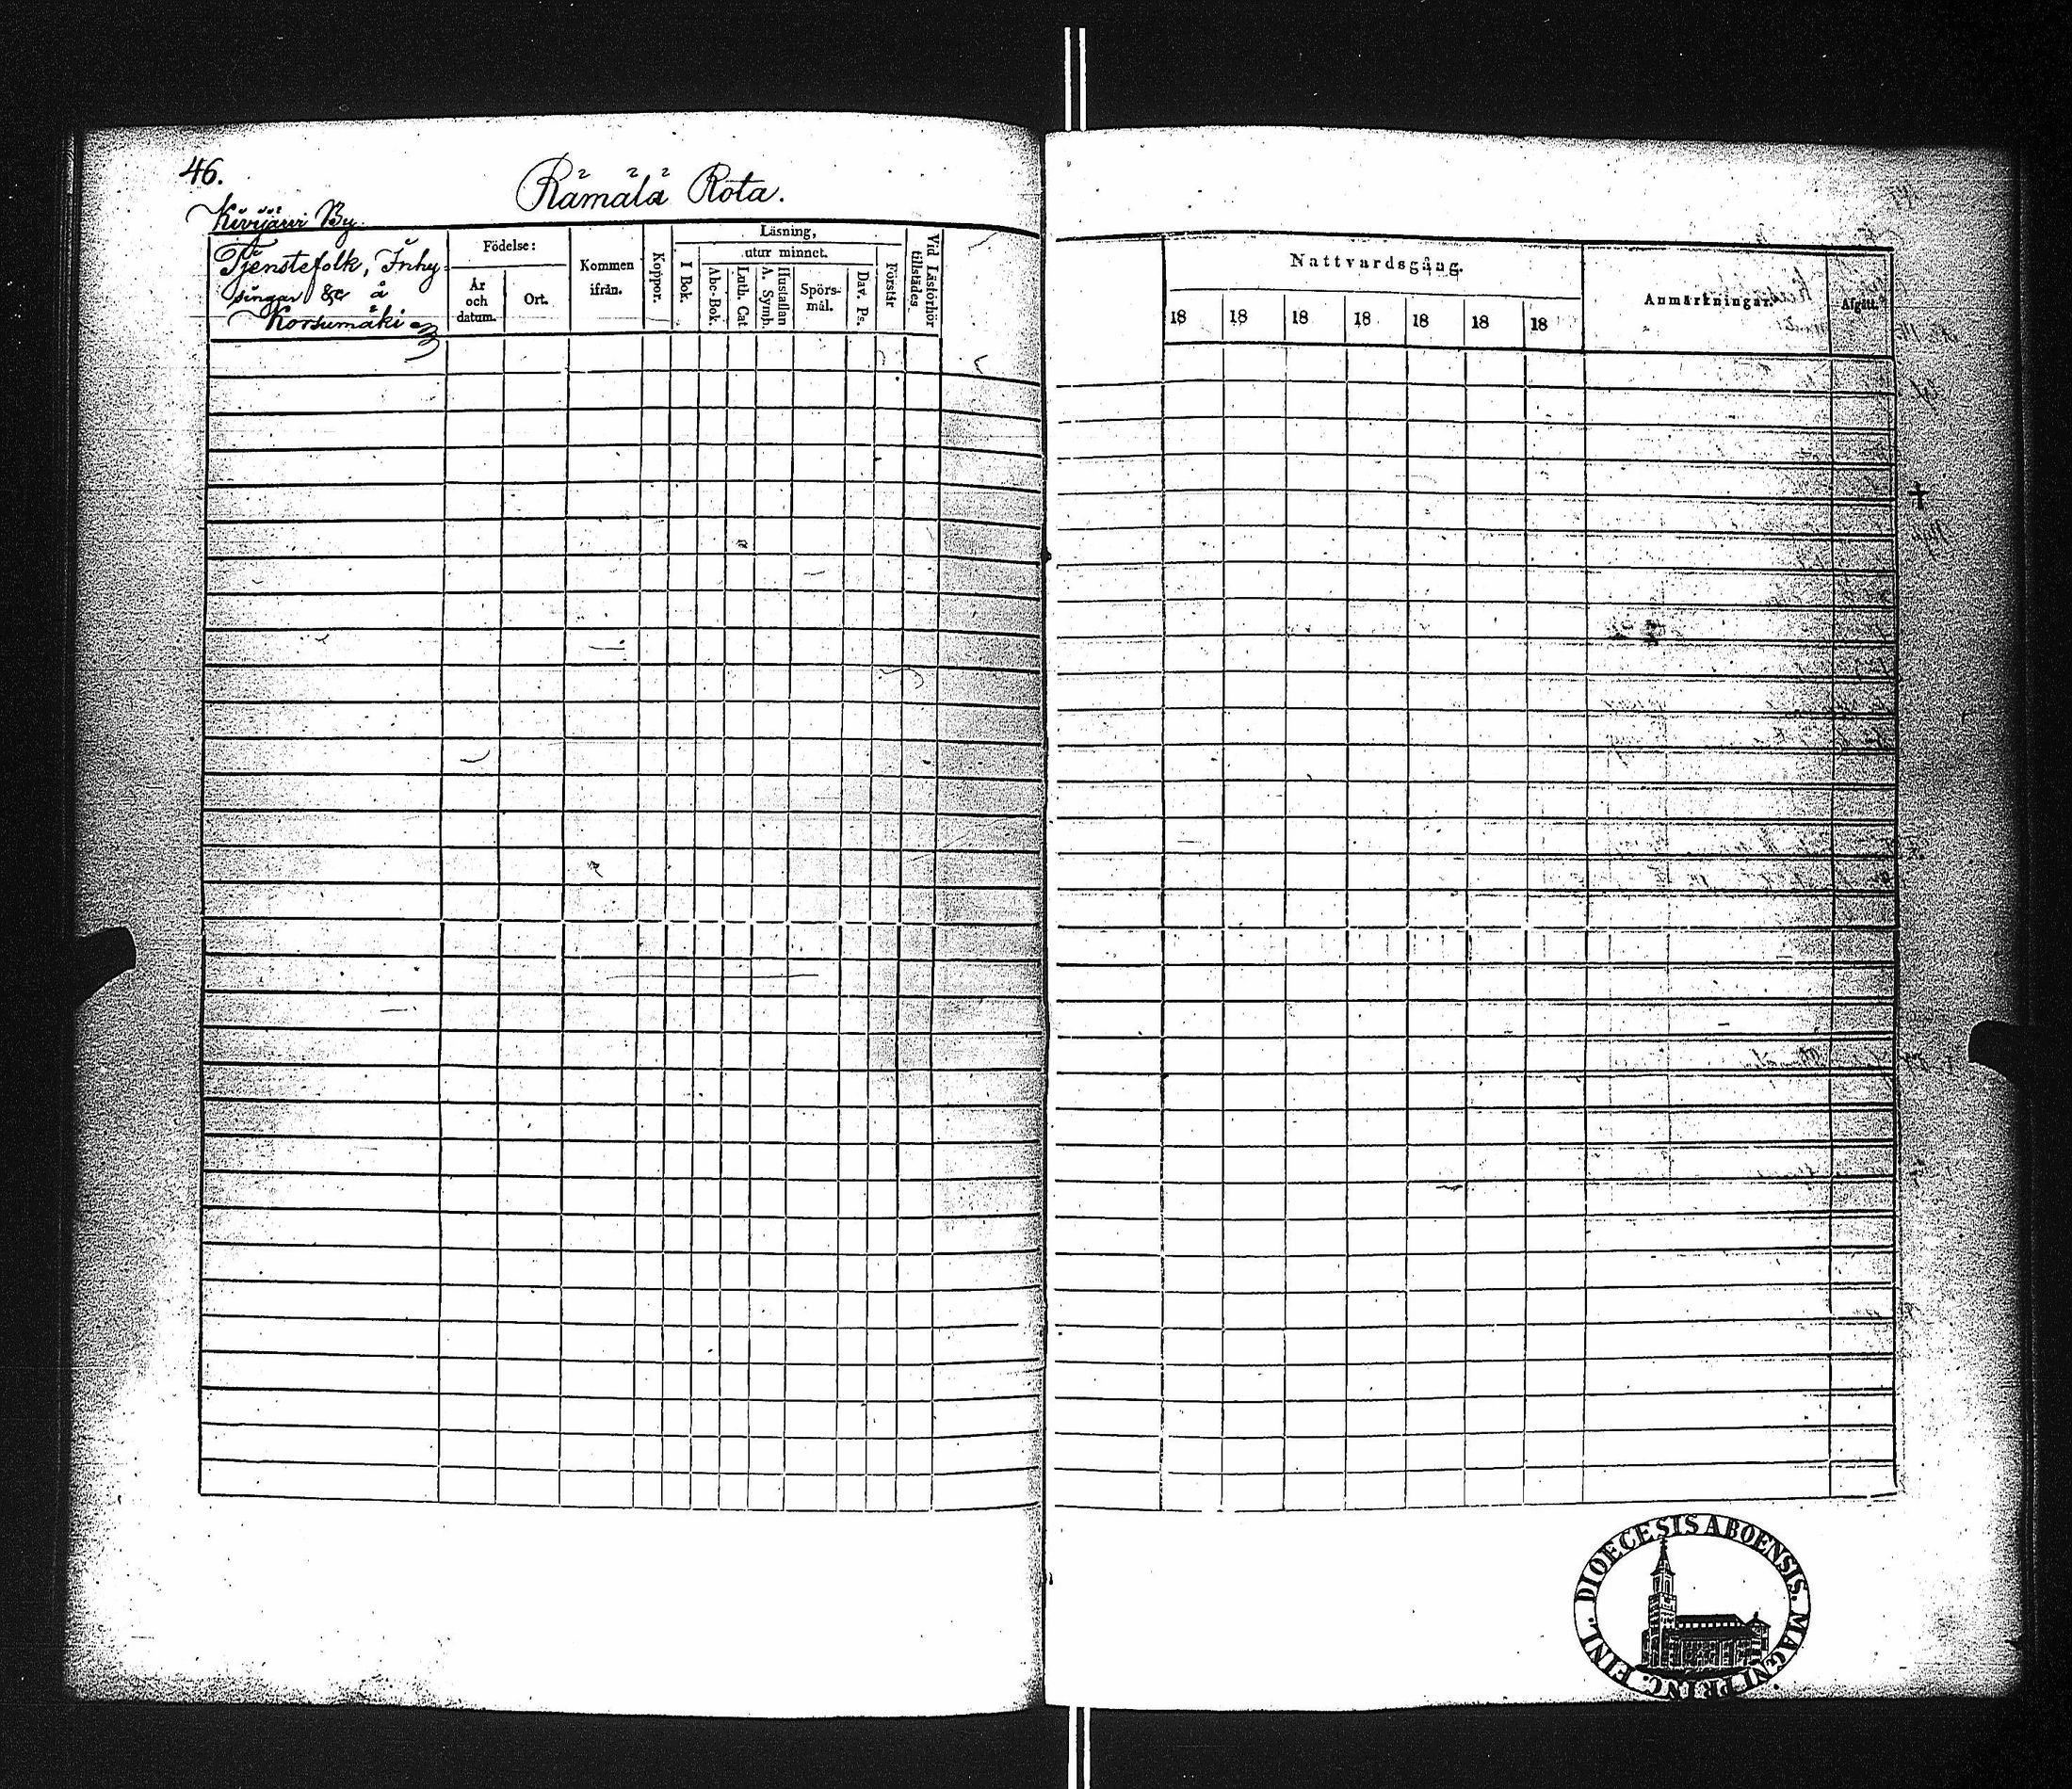 46.
Rämälä Rota.
Kivijärvi By.
Tjenstefolk, Inhy-
singar &c å
Korsumäki
Födelse:
År
och
datum.
Ort.
Kommen
ifrån.
Koppor.
Läsning,
I Bok.
utur minnet.
Abc-Bok.
Luth. Cat
Hustaflan
A. Symb.
Spörs-
mål.
Dav. Ps.
Förstår
Vid Läsförhör
tillstädes
Nattvardsgång.
18 18 18 18 18 18 18
Anmärkningar.
Afgått.
DIOECESIS ABOENSIS. MAGNI PRINC. FINL.